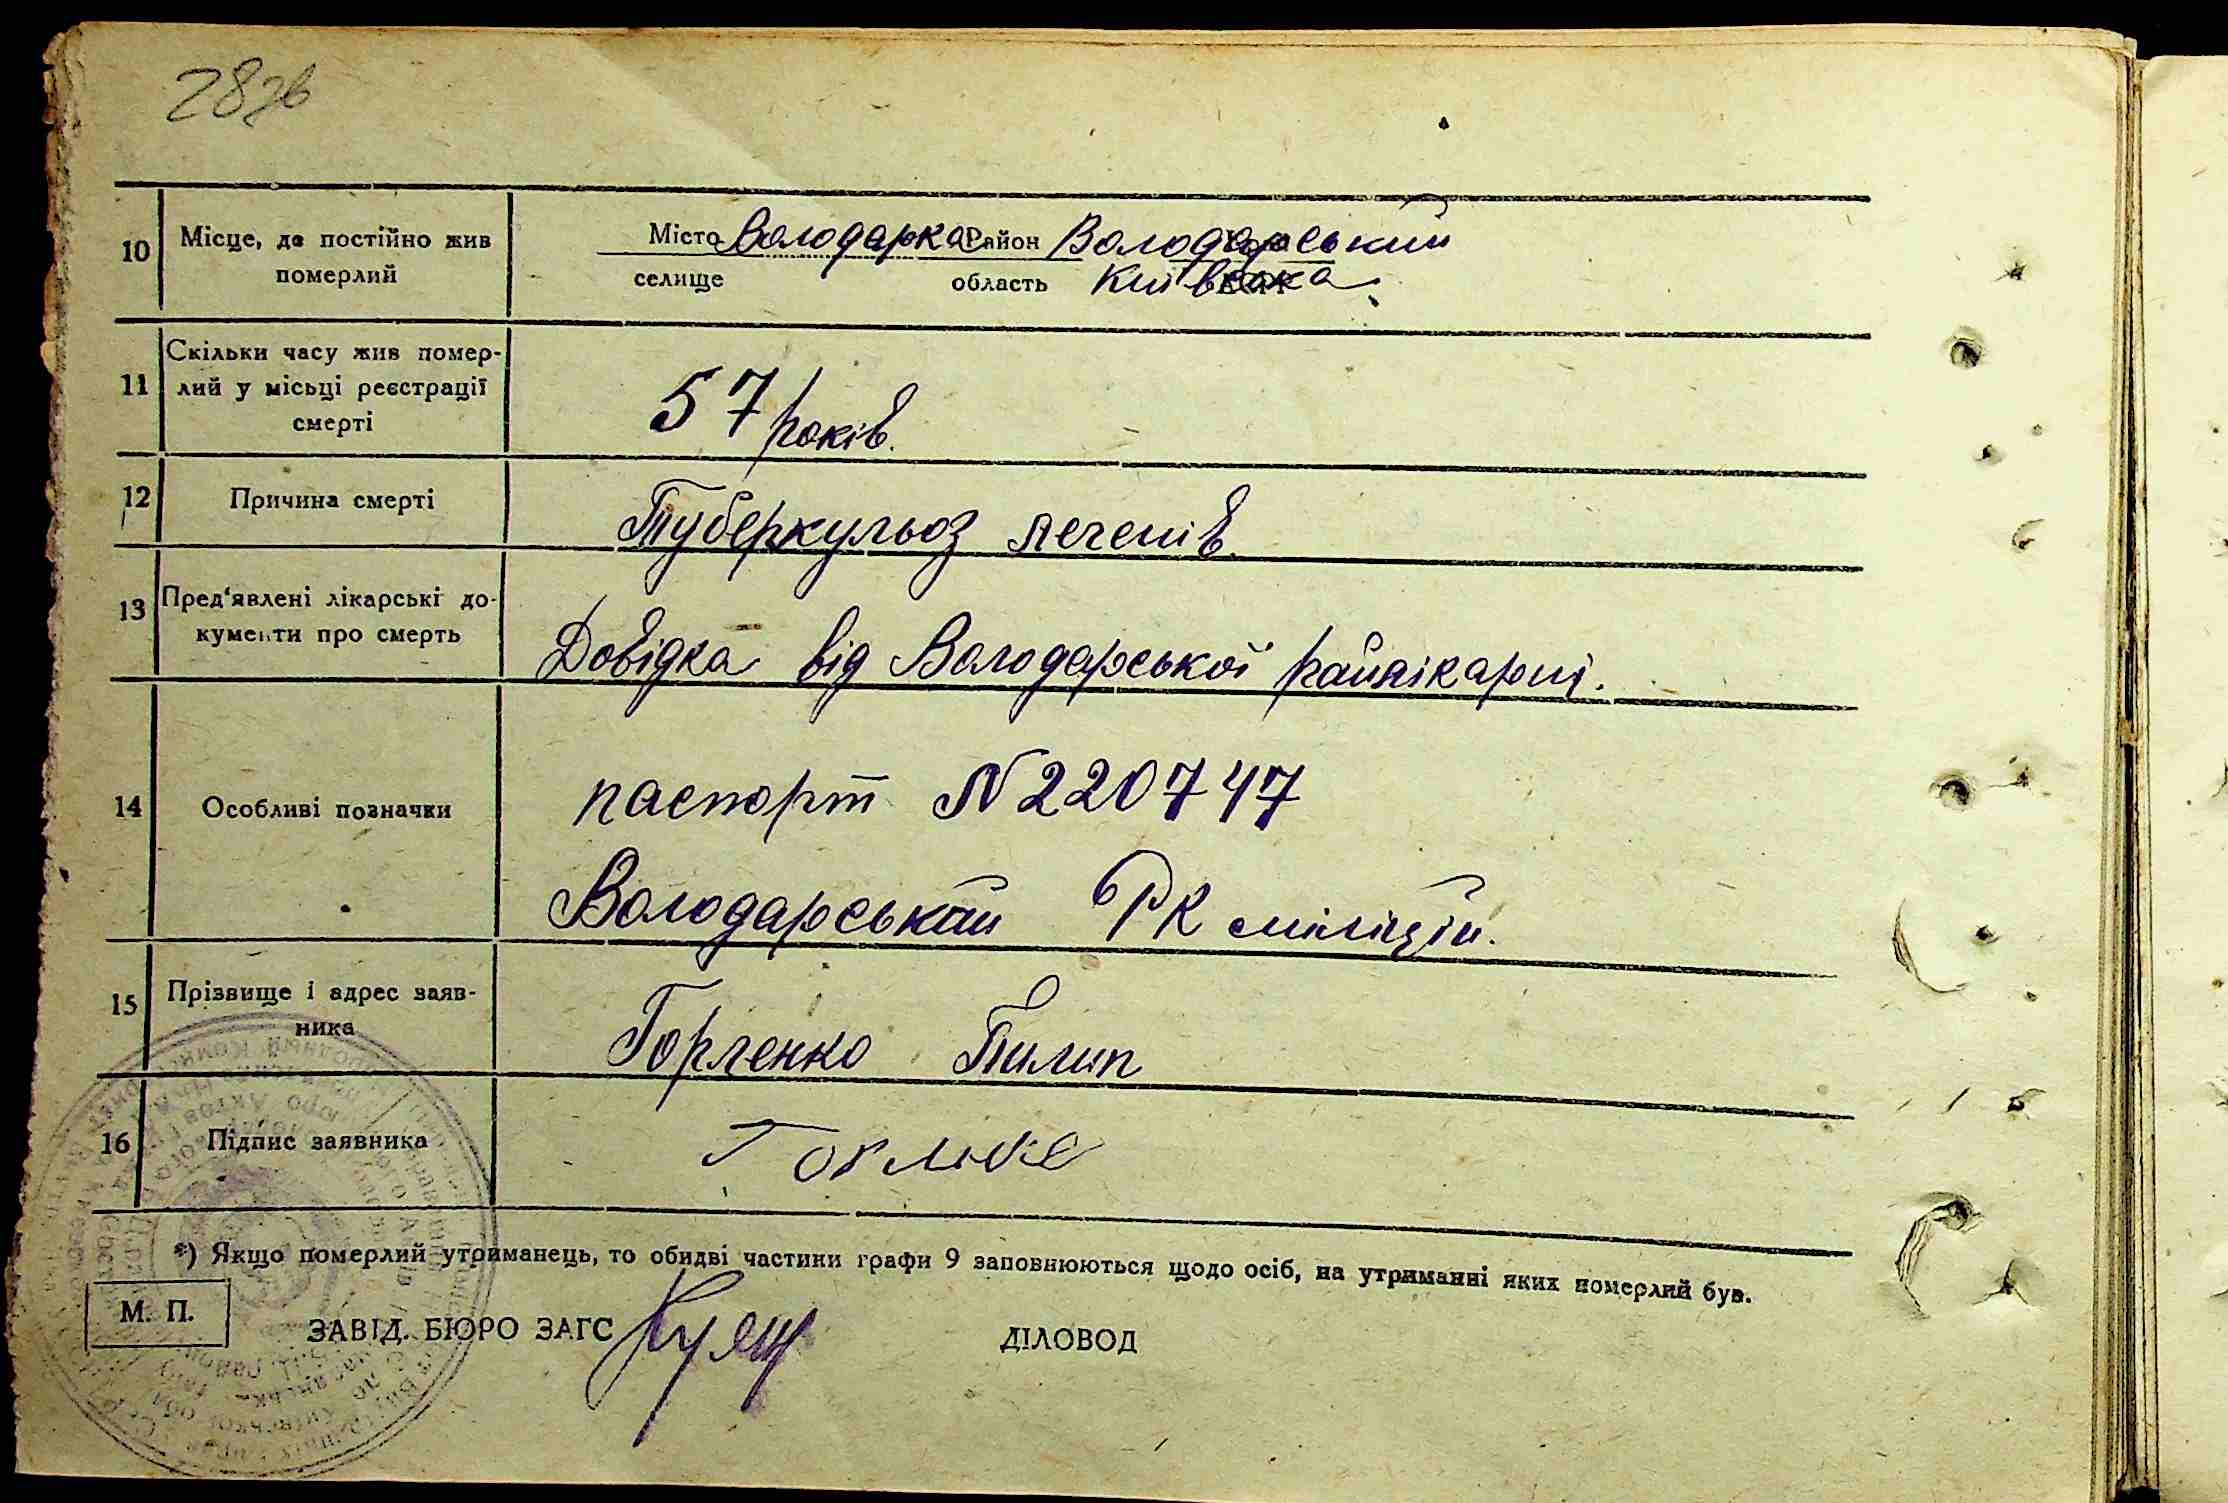 10 Місце, де постійно жив Місто Володарка район Володарський
померлий селище область Київська
Скільки часу жив помер-
11 лий у місьці реєстрації 57 років.
смерті
12 Причина смерті Туберкульоз печенів.
13 Пред'явлені лікарські до-
кументи про смерть Довідка від Володарської райлікарні.
паспорт N 220747
14 Особливі позначки
Володарський РК міліції.
15 Прізвище і адрес заяв-
ника Горленко Пилип
16 Підпис заявника
*) Якщо померлий утриманець, то обидві частини графи 9 заповнюються щодо осіб, на утриманні яких померлий був.
М. П.
ЗАВІД. БЮРО ЗАГС ДІЛОВОД